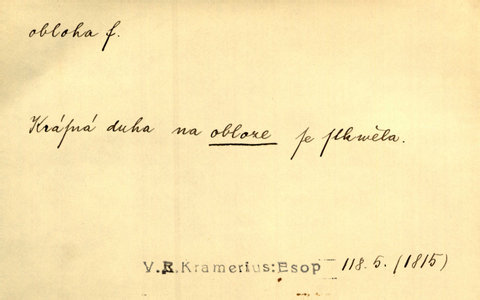 obloha f.
Kráſná duha na obloze ſe ſkwěla.
V.R.Kramerius:Esop 118.5.(1815)